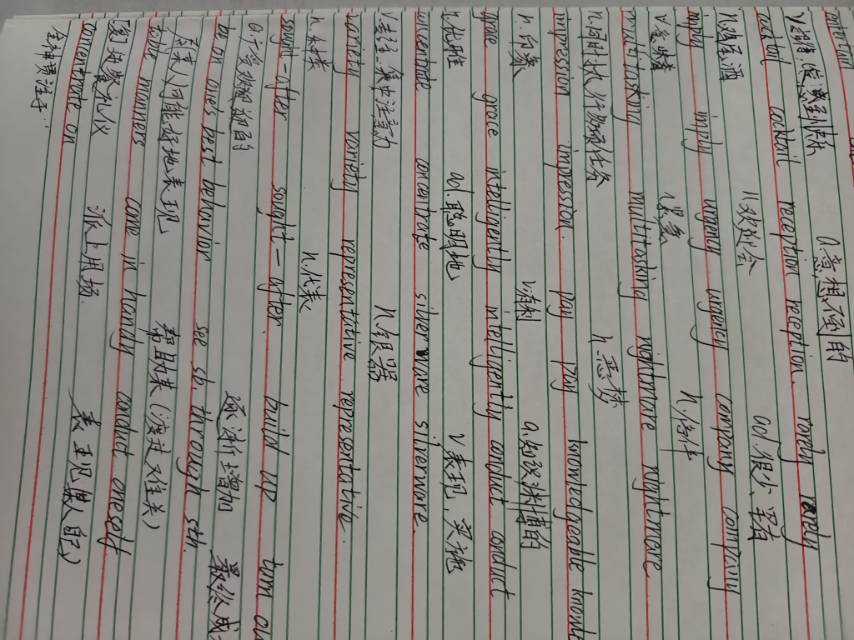 v.招待
n.意想不到的
cocktail cocktail reception reception. rarely rarely
n.鸡尾酒 n.欢迎会 ad.很少,罕有
imply imply urgency urgency company company
v.意味 n.紧急 n.陪伴
multitasking multitasking nightmare nightmare
n.同时执行多项任务 n.恶梦
impression impression. pay pay knowledgeable
n.印象 a.知识渊博的
grace grace intelligently intelligently conduct conduct
n.优雅 ad.聪明地 v.表现,实施
concentrate concentrate silverware silverware.
v.专注,集中注意力 n.银器
variety variety representative representative.
n.种类 n.代表
sought-after sought-after. build up turn
a.广受欢迎的 逐渐增加 最终成
be on one's best behavior see sb through sth.
尽某人可能好地表现 帮助某(渡过难关)
table manners come in handy conduct oneself
餐桌礼仪 派上用场 表现某人自己
concentrate on
全神贯注于..